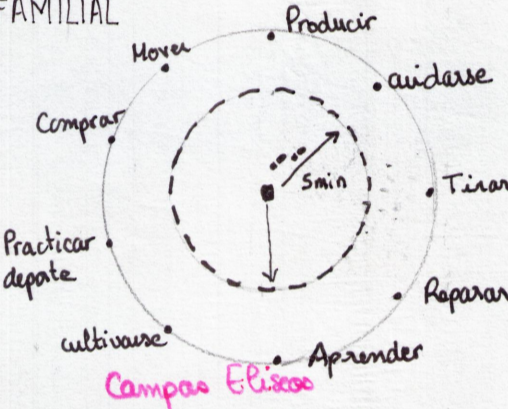 FAMILIAL
Producir
Mover
cuidarse
Comprar
5min
Tirar
Practicar
deporte
Reparar
cultivarse
Aprender
Campos Eliseos